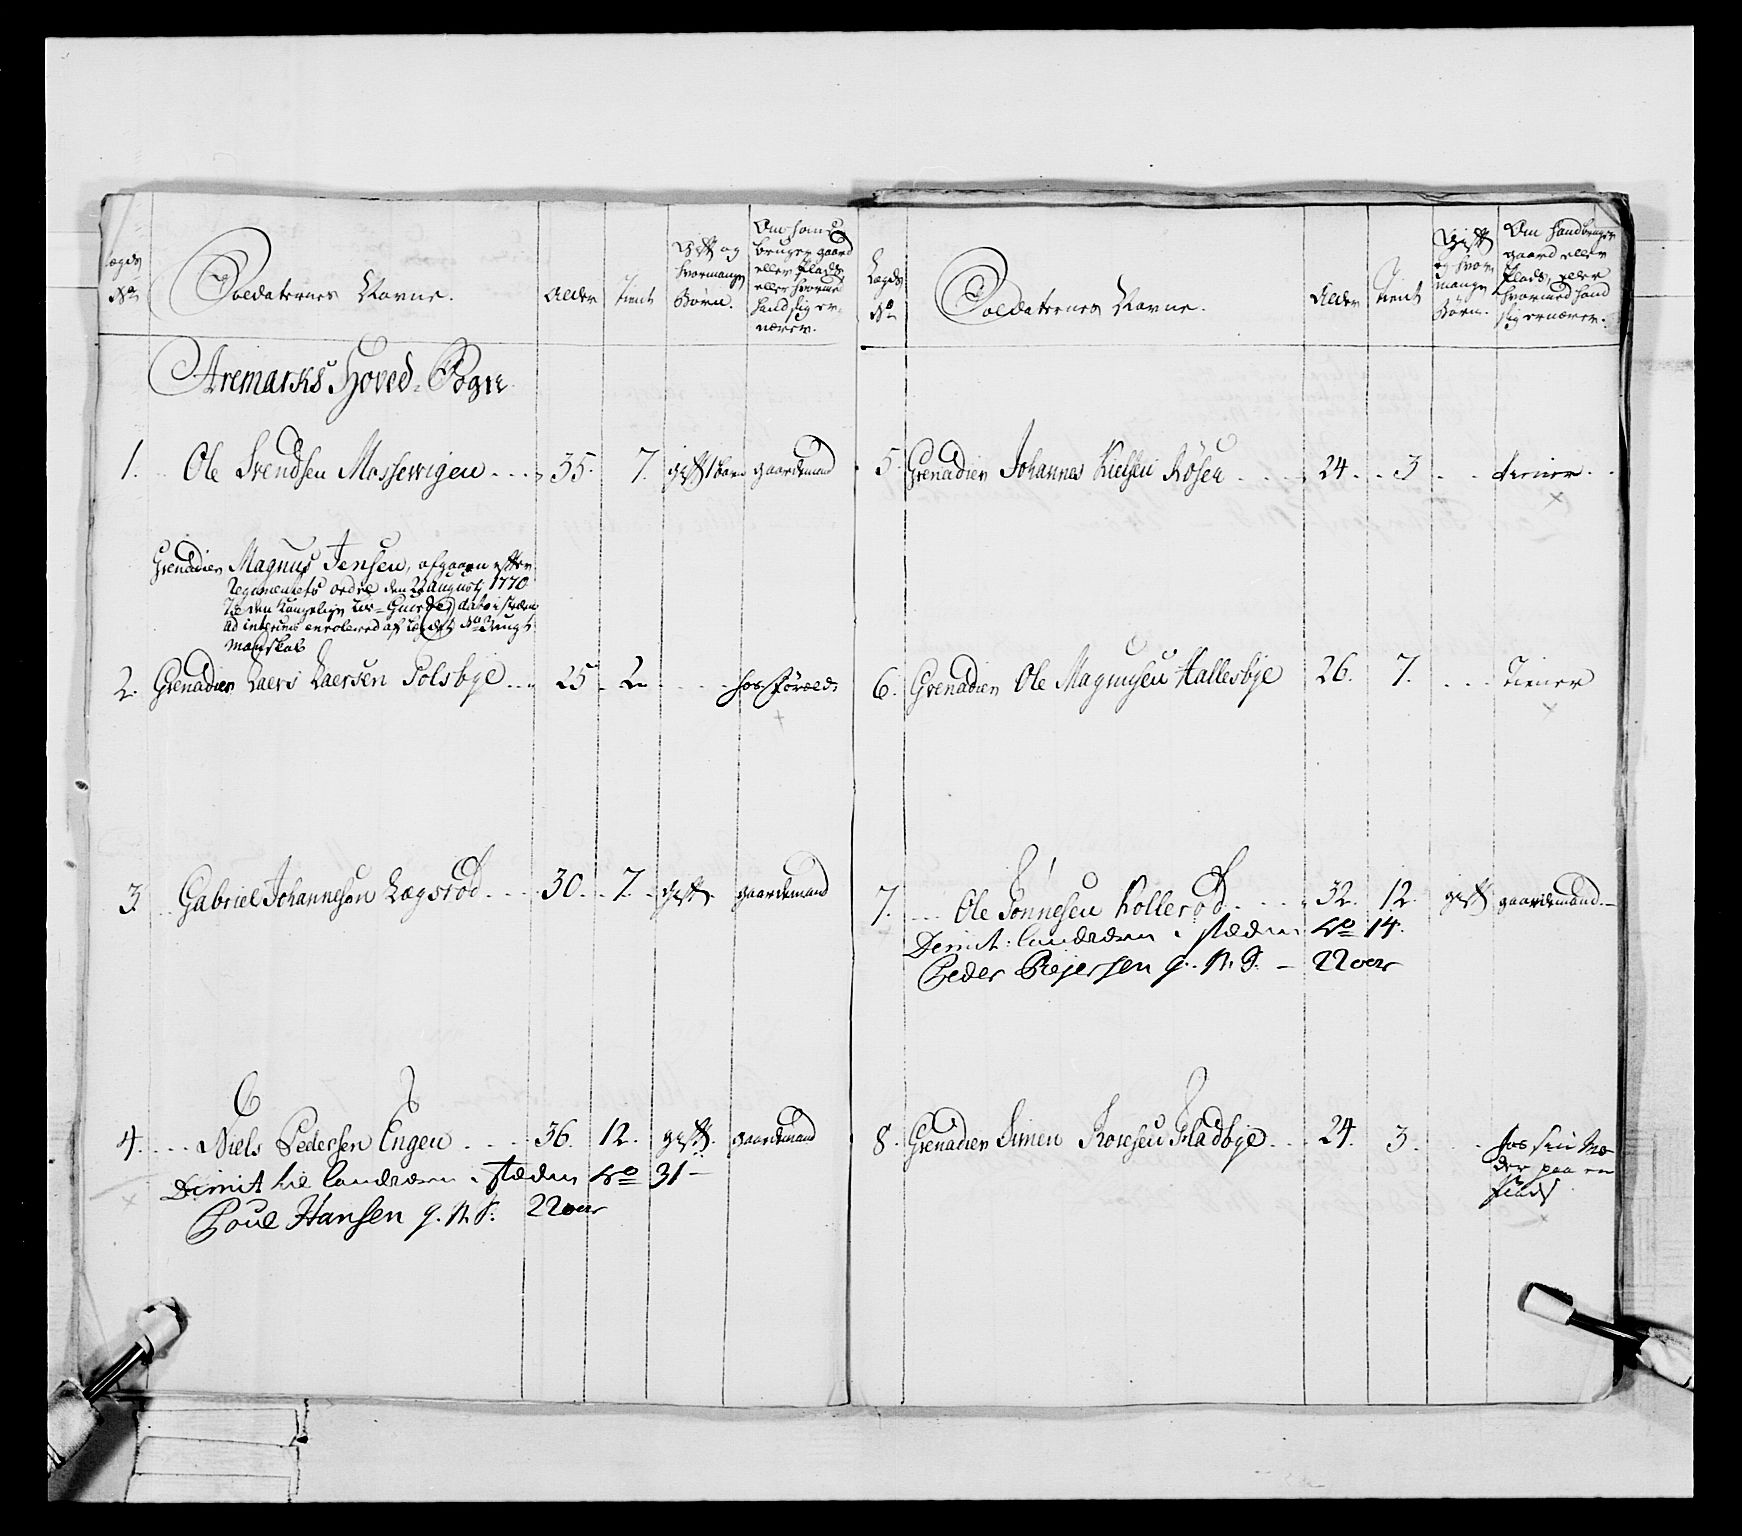 Lægds
No
Soldaternes Navne.
Alder
Tient
Gift og
hvormange
Børn.
Om hand
bruger gaard
eller Plads
eller hvormed
hand sig er-
nærer.
Aremarks Hoved-Sogn
1. Ole Svendsen Mossevigen 35. 7. gift 1 barn gaardmand
Grenadier Magnus Jensen, afgaaen efter
Regimentets ordre den August 1770
Til den Kongelige Liv-Guarde, dato i stæden
ad interim enroleret af Lægdet No ungt
Mandskab
2. Grenadier Laers Laersen Solsbye 25. 2. hos Foræld:
3. Gabriel Johannesøn Lægsrød 30. 7. gift gaardmand
4. Niels Pedersen Engen 36. 12. gift. gaardmand
Dimit til landværn i stæden No 31 –
Poul Hansen g. N. S. 22 aar
Lægds
No
Soldaternes Navne.
Alder
Tient
Gift
og hvor
mange
Børn.
Om hand bruger
gaard eller
Plads, eller
hvormed hand
sig ernærer.
5. Grenadier Johannes Nielsen Røsen 24. 3 tiener.
6. Grenadier Ole Magnusen Hallesbye 26. 7. Tiener
7. Ole Tønnesen Kollerød 32. 12. gift gaardmand.
Dimit: landværn i stæden No 14.
Peder Piejersen g. N. S. – 22 aar
8. Grenadier Simen Floadbye 24. 3. hos sin Mo-
der paa en
Plads